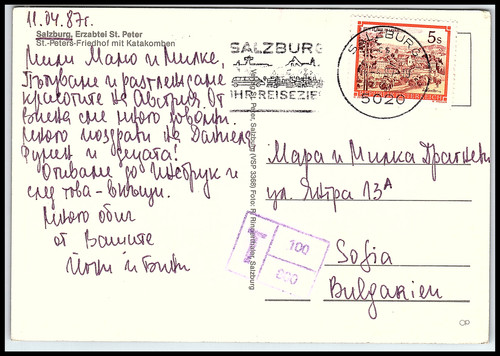 11.04.87г.
Salzburg, Erzabtei St. Peter
St.-Peters-Friedhof mit Katakomben
Мили Маро и Милке,
Пътуваме и разглеждаме
красотите на Австрия. От
Виена сме много доволни.
Много поздрави на Даниела
Румен и децата!
Отиваме до Инсбрук и
след това - вкъщи.
Много обич
от Вашите
Verlag St. Peter, Salzburg (VSP 3368) Foto: R. Rinnerthaler, Salzburg
SALZBURG
IHR REISEZIEL
SALZBURG
5020
5s
100
000
Мара и Милка Драгневи
ул. Янтра 13А
Sofia
Bulgarien